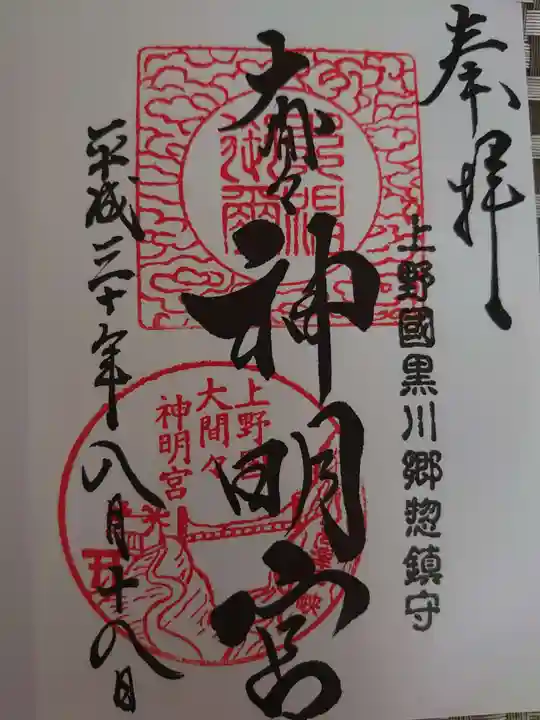 奉拝
上野國黒川郷惣鎮守
大間々
神明宮
上野國
大間々
神明宮
平成三十年八月十八日